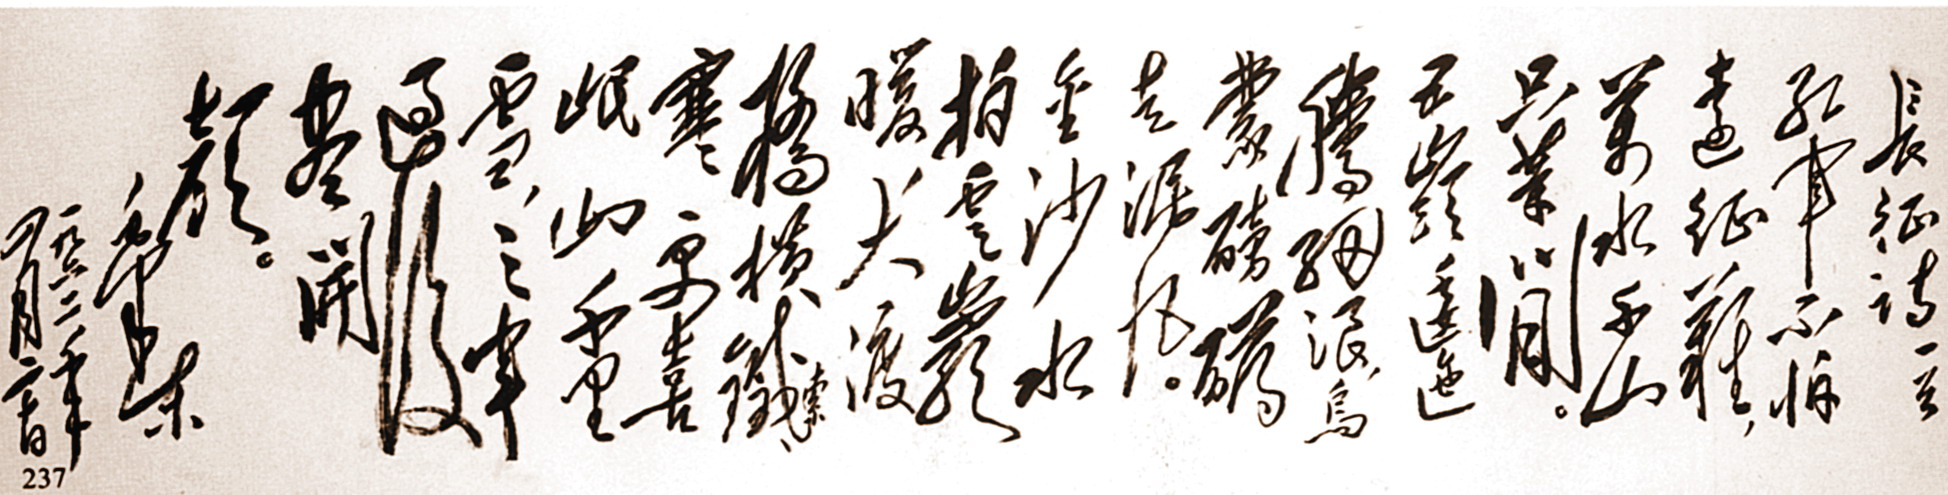 長征詩一首
紅軍不怕
遠征難,
萬水千山
只等閒。
五嶺逶迤
騰細浪,烏
蒙磅礴
走泥丸。
金沙水
拍雲巖
暖大渡
橋橫鐵索
寒更喜
岷山千里
雪,三軍
過後
盡開
顏。
毛澤東
一九六二年
四月二十日
237